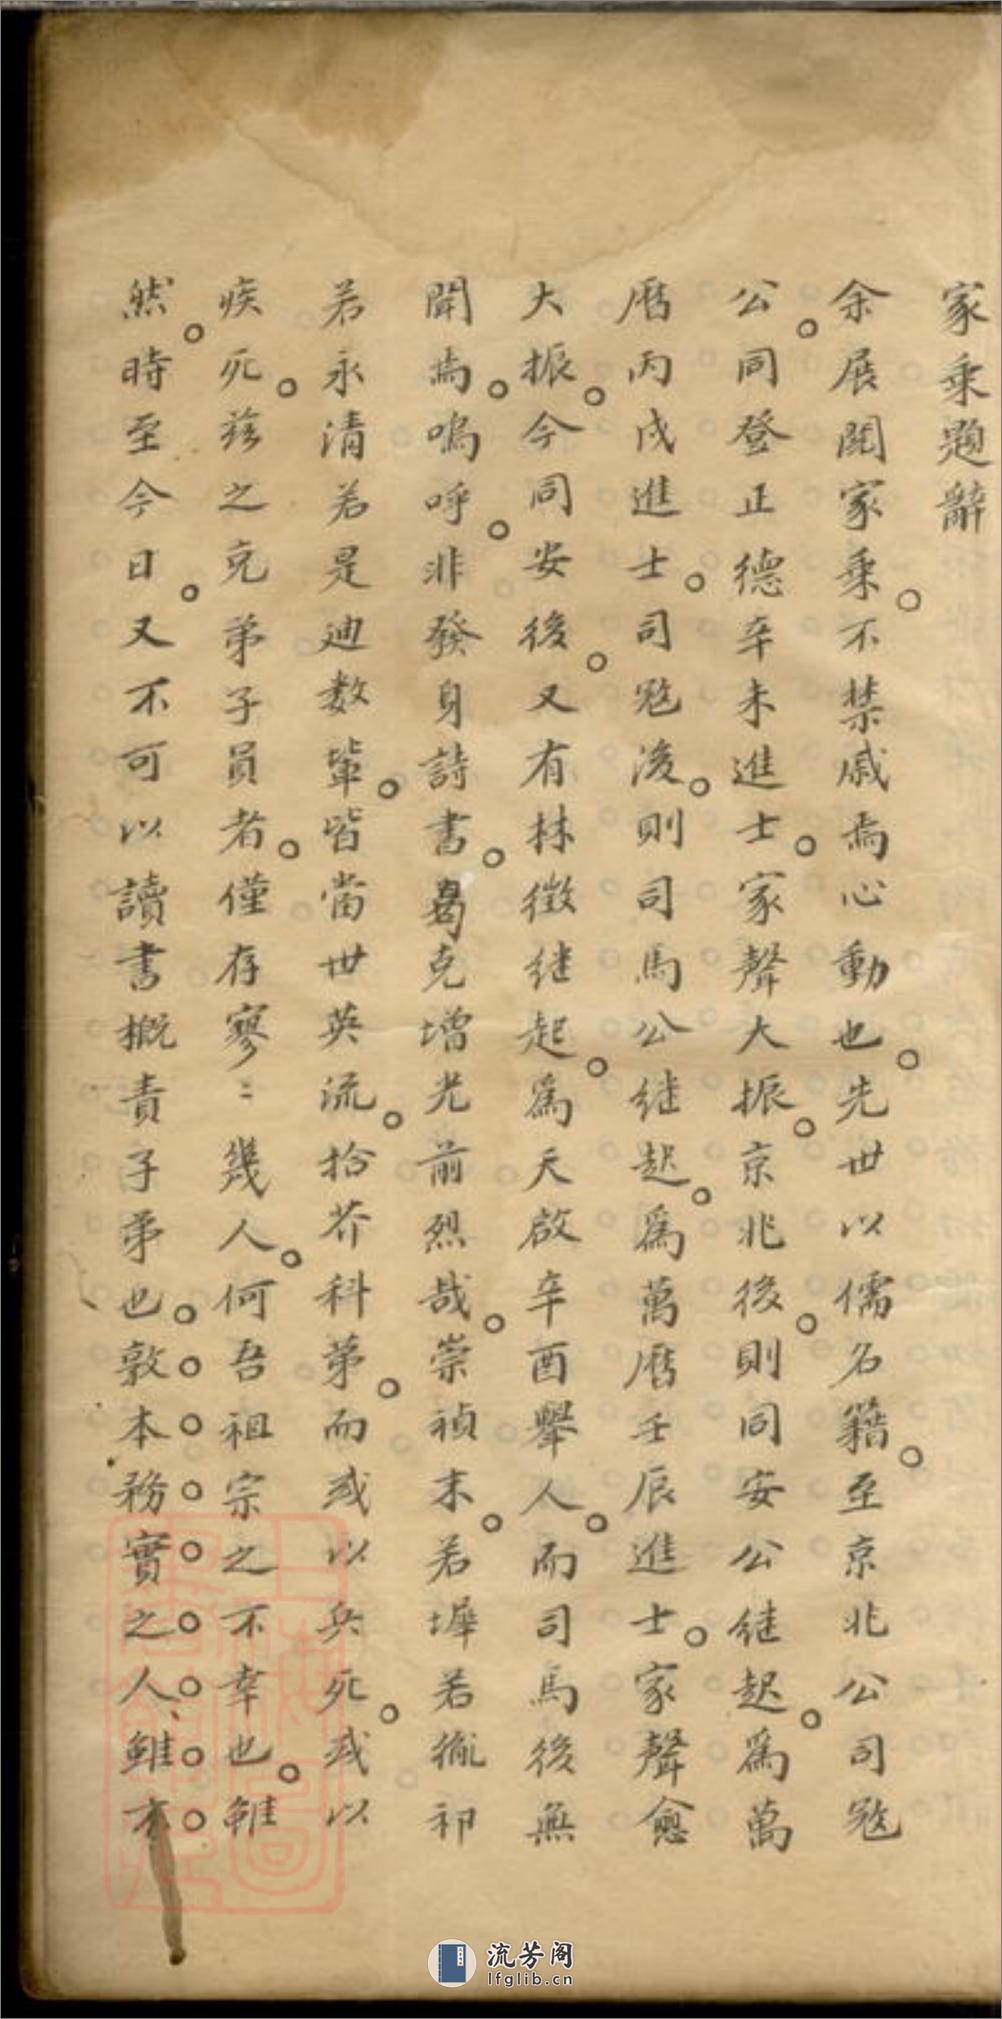 家乘題辭
余展閱家乘。不禁戚焉心動也。先世以儒名籍。至京兆公司寇
公。同登正德辛未進士。家聲大振。京兆後。則同安公継起。爲萬
曆丙戌進士。司寇後。則司馬公継起。爲萬曆壬辰進士。家聲愈
大振。今同安後。又有林徵継起。爲天啟辛酉舉人。而司馬後無
聞焉。嗚呼。非發身詩書。曷克增光前烈哉。崇禎末。若墀若胤祁
若永清若是迪数輩。皆當世英流。拾芥科第。而或以兵死。或以
疾死。茲之克弟子員者。僅存寥〻幾人。何吾祖宗之不幸也。雖
然。時至今日。又不可以讀書概責子弟也。敦本務實之人、雖不
流芳阁
lfglib.cn